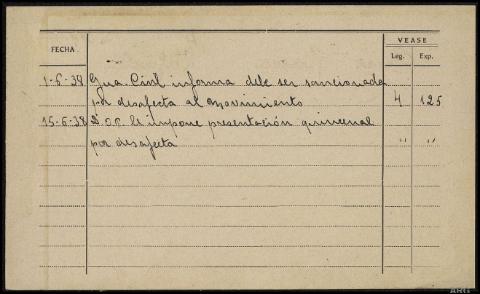 VEASE
FECHA
Leg. Exp.
1-6-38 Gua. Civil informa debe ser sancionada
por desafecta al movimiento 4 125
15-6-38 D.O.P. le impone presentación quincenal
por desafecta " "